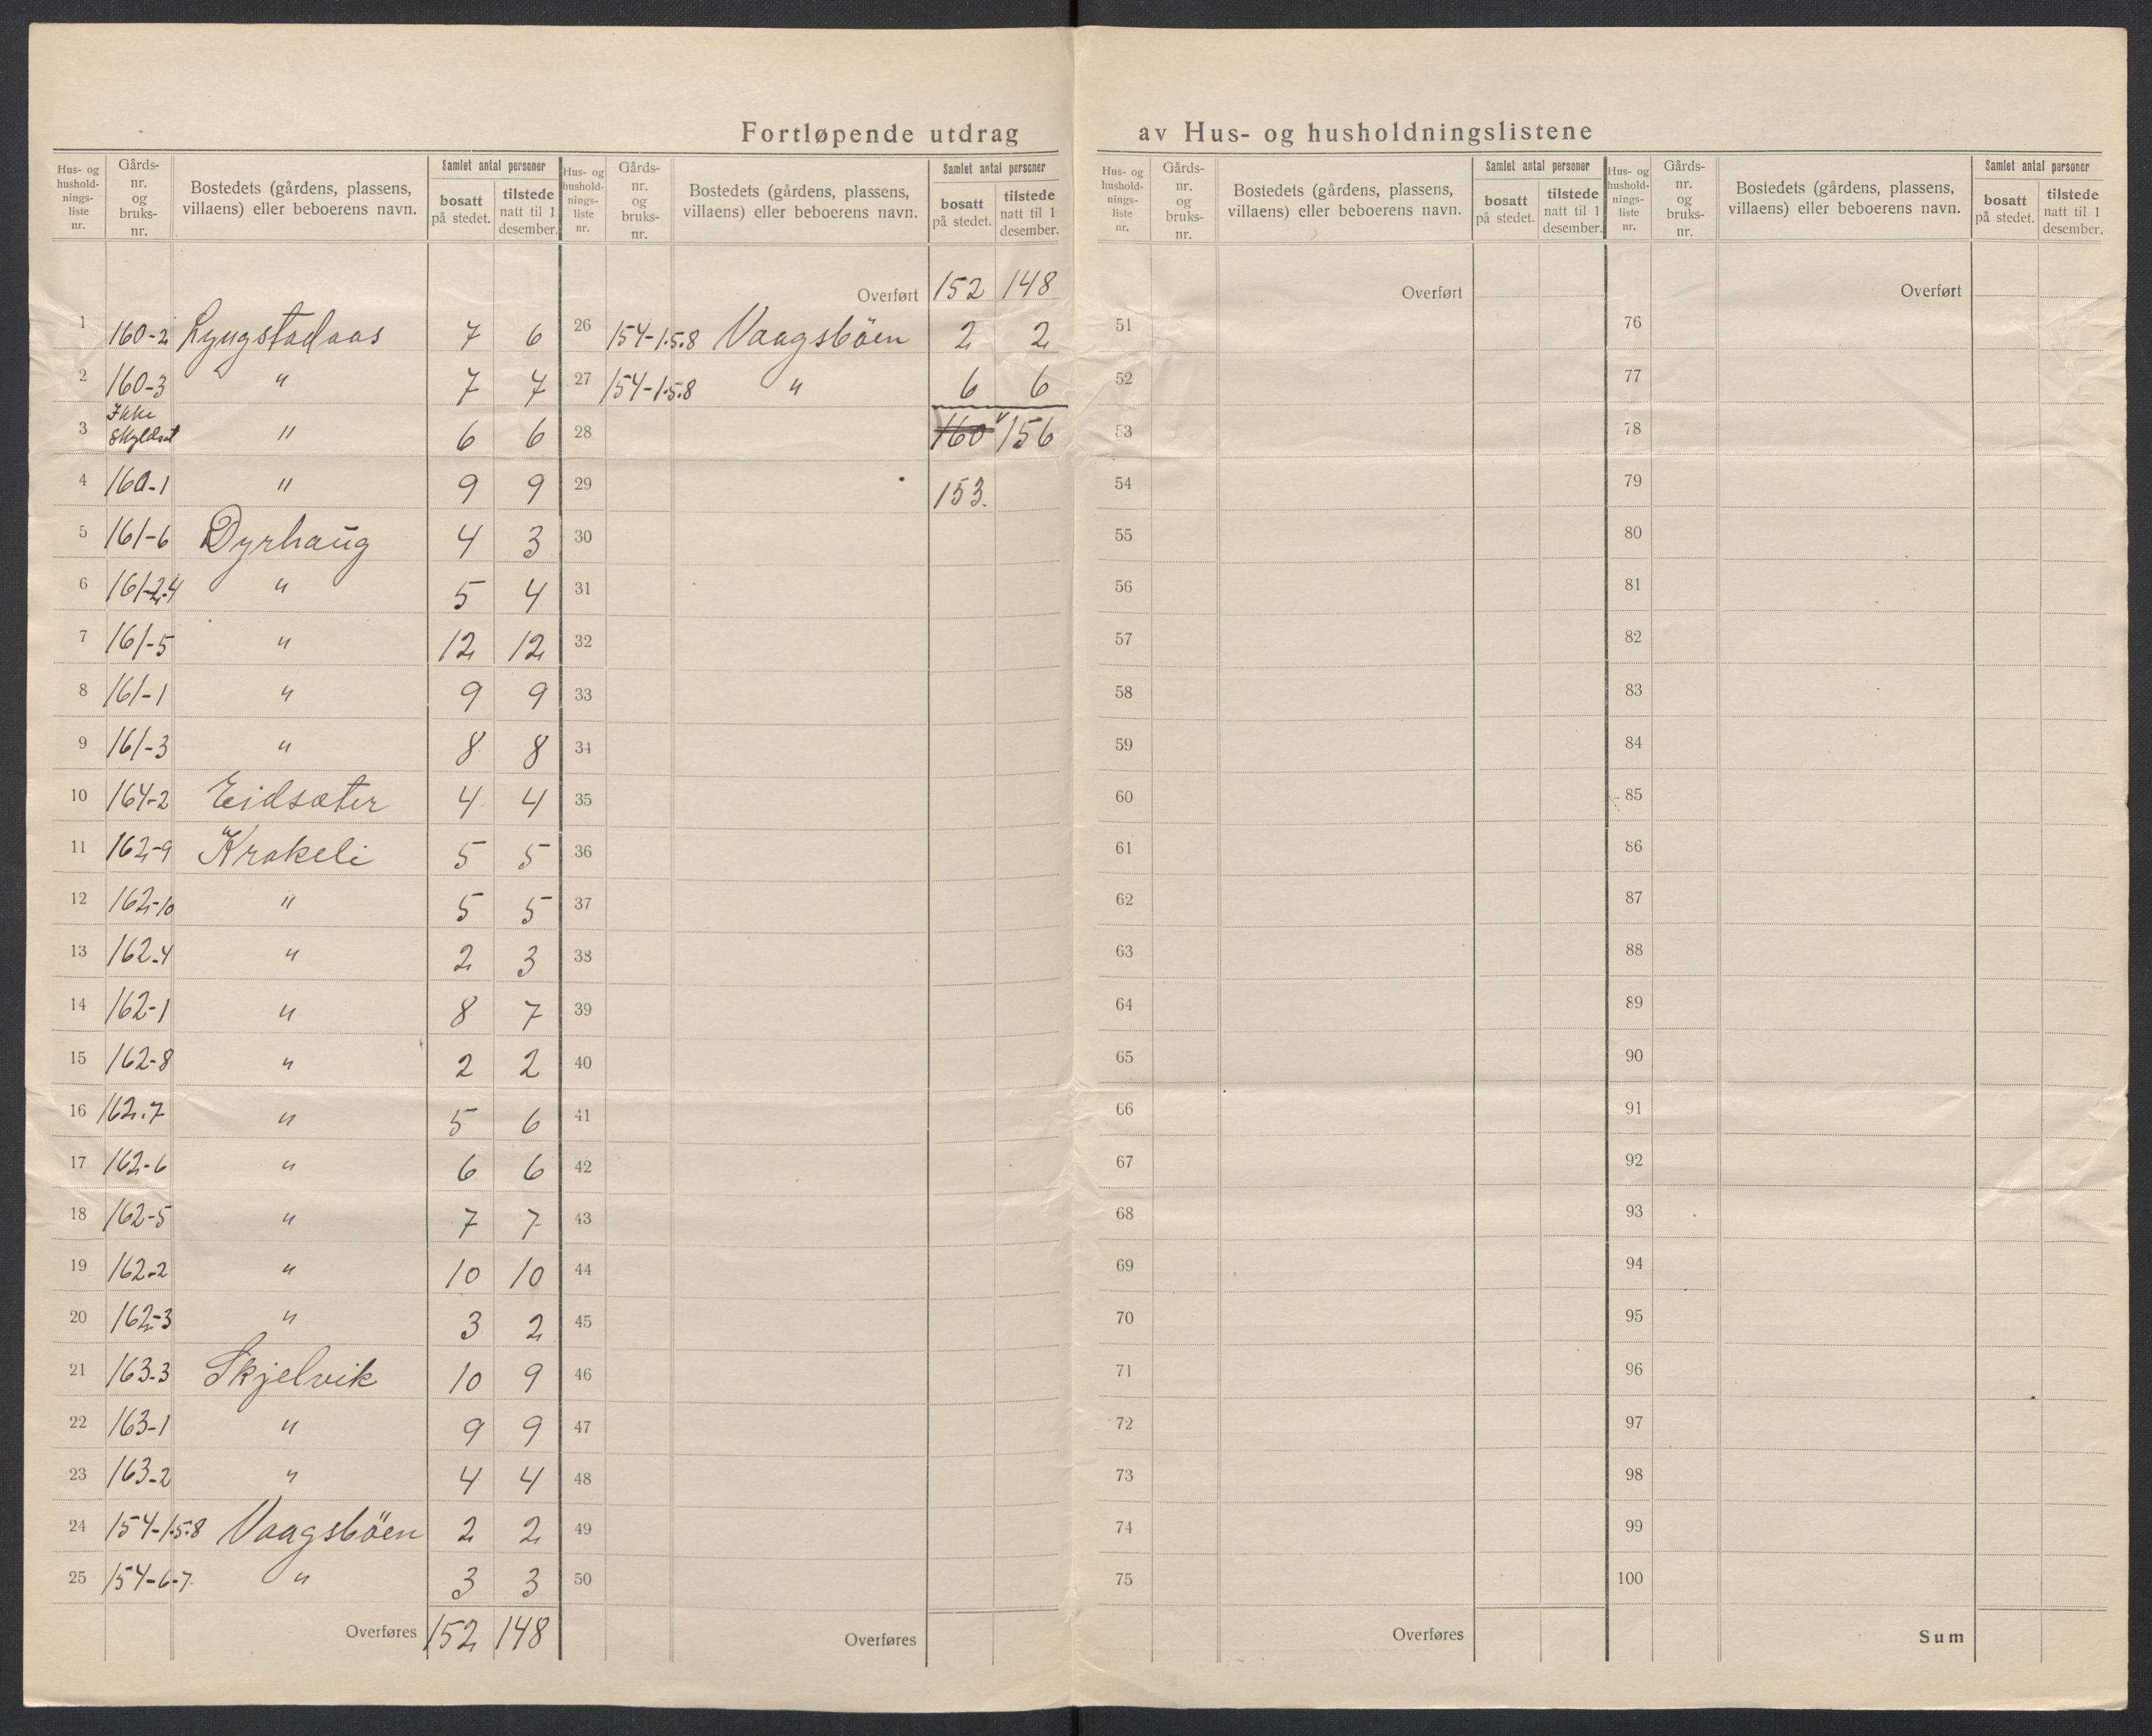 Fortløpende utdrag av Hus- og husholdningslistene
Hus- og hushold-nings-liste nr. Gårds-nr. og bruks-nr. Bostedets (gårdens, plassens, villaens) eller beboerens navn. Samlet antal personer bosatt på stedet. tilstede natt til 1 desember.
Hus- og hushold-nings-liste nr. Gårds-nr. og bruks-nr. Bostedets (gårdens, plassens, villaens) eller beboerens navn. Samlet antal personer bosatt på stedet. tilstede natt til 1 desember.
Hus- og hushold-nings-liste nr. Gårds-nr. og bruks-nr. Bostedets (gårdens, plassens, villaens) eller beboerens navn. Samlet antal personer bosatt på stedet. tilstede natt til 1 desember.
Hus- og hushold-nings-liste nr. Gårds-nr. og bruks-nr. Bostedets (gårdens, plassens, villaens) eller beboerens navn. Samlet antal personer bosatt på stedet. tilstede natt til 1 desember.
1 160-2 Lyngstadaas 7 6
2 160-3 " 7 7
3 Ikke Skyldsat " 6 6
4 160-1 " 9 9
5 161-6 Dyrhaug 4 3
6 161-2.4 " 5 4
7 161-5 " 12 12
8 161-1 " 9 9
9 161-3 " 8 8
10 164-2 Eidsæter 4 4
11 162-9 Krakeli 5 5
12 162-10 " 5 5
13 162-4 " 2 3
14 162-1 " 8 7
15 162-8 " 2 2
16 162.7 " 5 6
17 162-6 " 6 6
18 162-5 " 7 7
19 162-2 " 10 10
20 162-3 " 3 2
21 163-3 Skjelvik 10 9
22 163-1 " 9 9
23 163-2 " 4 4
24 154-1.5.8 Vaagsböen 2 2
25 154-6-7 " 3 3
Overføres 152 148
Overført 152 148
26 154-1.5.8 Vaagsböen 2 2
27 154-1.5.8 " 6 6
28 160 156
29 153.
30
31
32
33
34
35
36
37
38
39
40
41
42
43
44
45
46
47
48
49
50
Overføres
Overført
51
52
53
54
55
56
57
58
59
60
61
62
63
64
65
66
67
68
69
70
71
72
73
74
75
Overføres
Overført
76
77
78
79
80
81
82
83
84
85
86
87
88
89
90
91
92
93
94
95
96
97
98
99
100
Sum